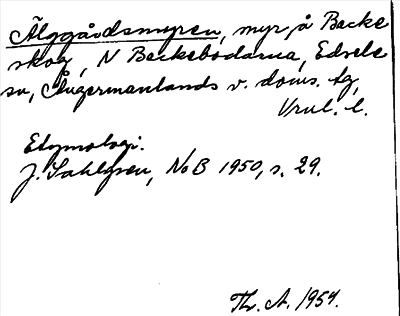 Älggårdsmyren, myr å Backe
skog, N Backebodarna, Edsele
sn, Ångermanlands v. doms. tg,
Vrnl. l.
Etymologi.
J. Sahlgren, NoB 1950, s. 29.
Th. A. 1954.